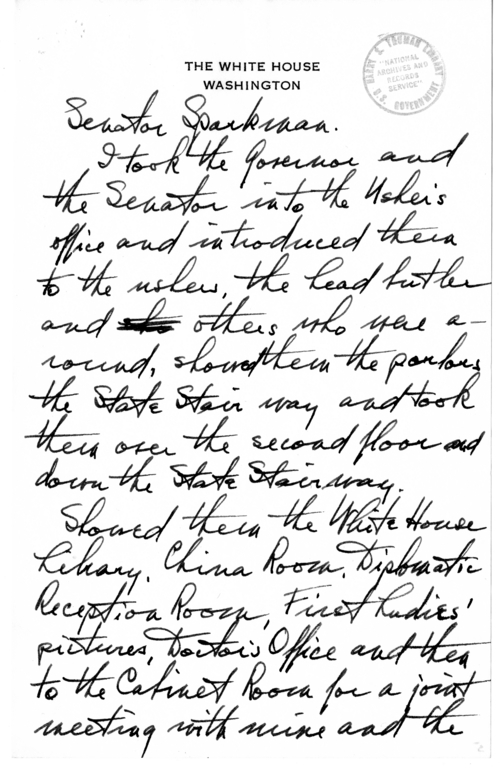 THE WHITE HOUSE
WASHINGTON
HARRY S. TRUMAN LIBRARY
"NATIONAL
ARCHIVES AND
RECORDS
SERVICE"
U.S. GOVERNMENT
Senator Sparkman.
I took the Governor and
the Senator into the Usher's
office and introduced them
to the ushers, the head butler
and others who were a-
round, showed them the parlors
the State Stair way and took
them over the second floor and
down the State Stairway.
Showed them the White House
Libary, China Room, Diplomatic
Reception Room, First Ladies'
pictures, Doctor's Office and then
to the Cabinet Room for a joint
meeting with mine and the
2